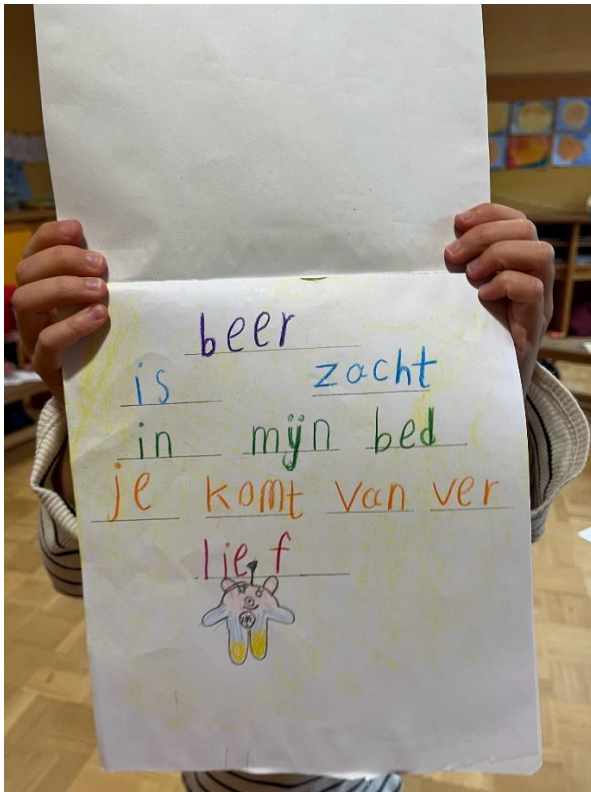 beer
is zacht
in mijn bed
je komt van ver
lief